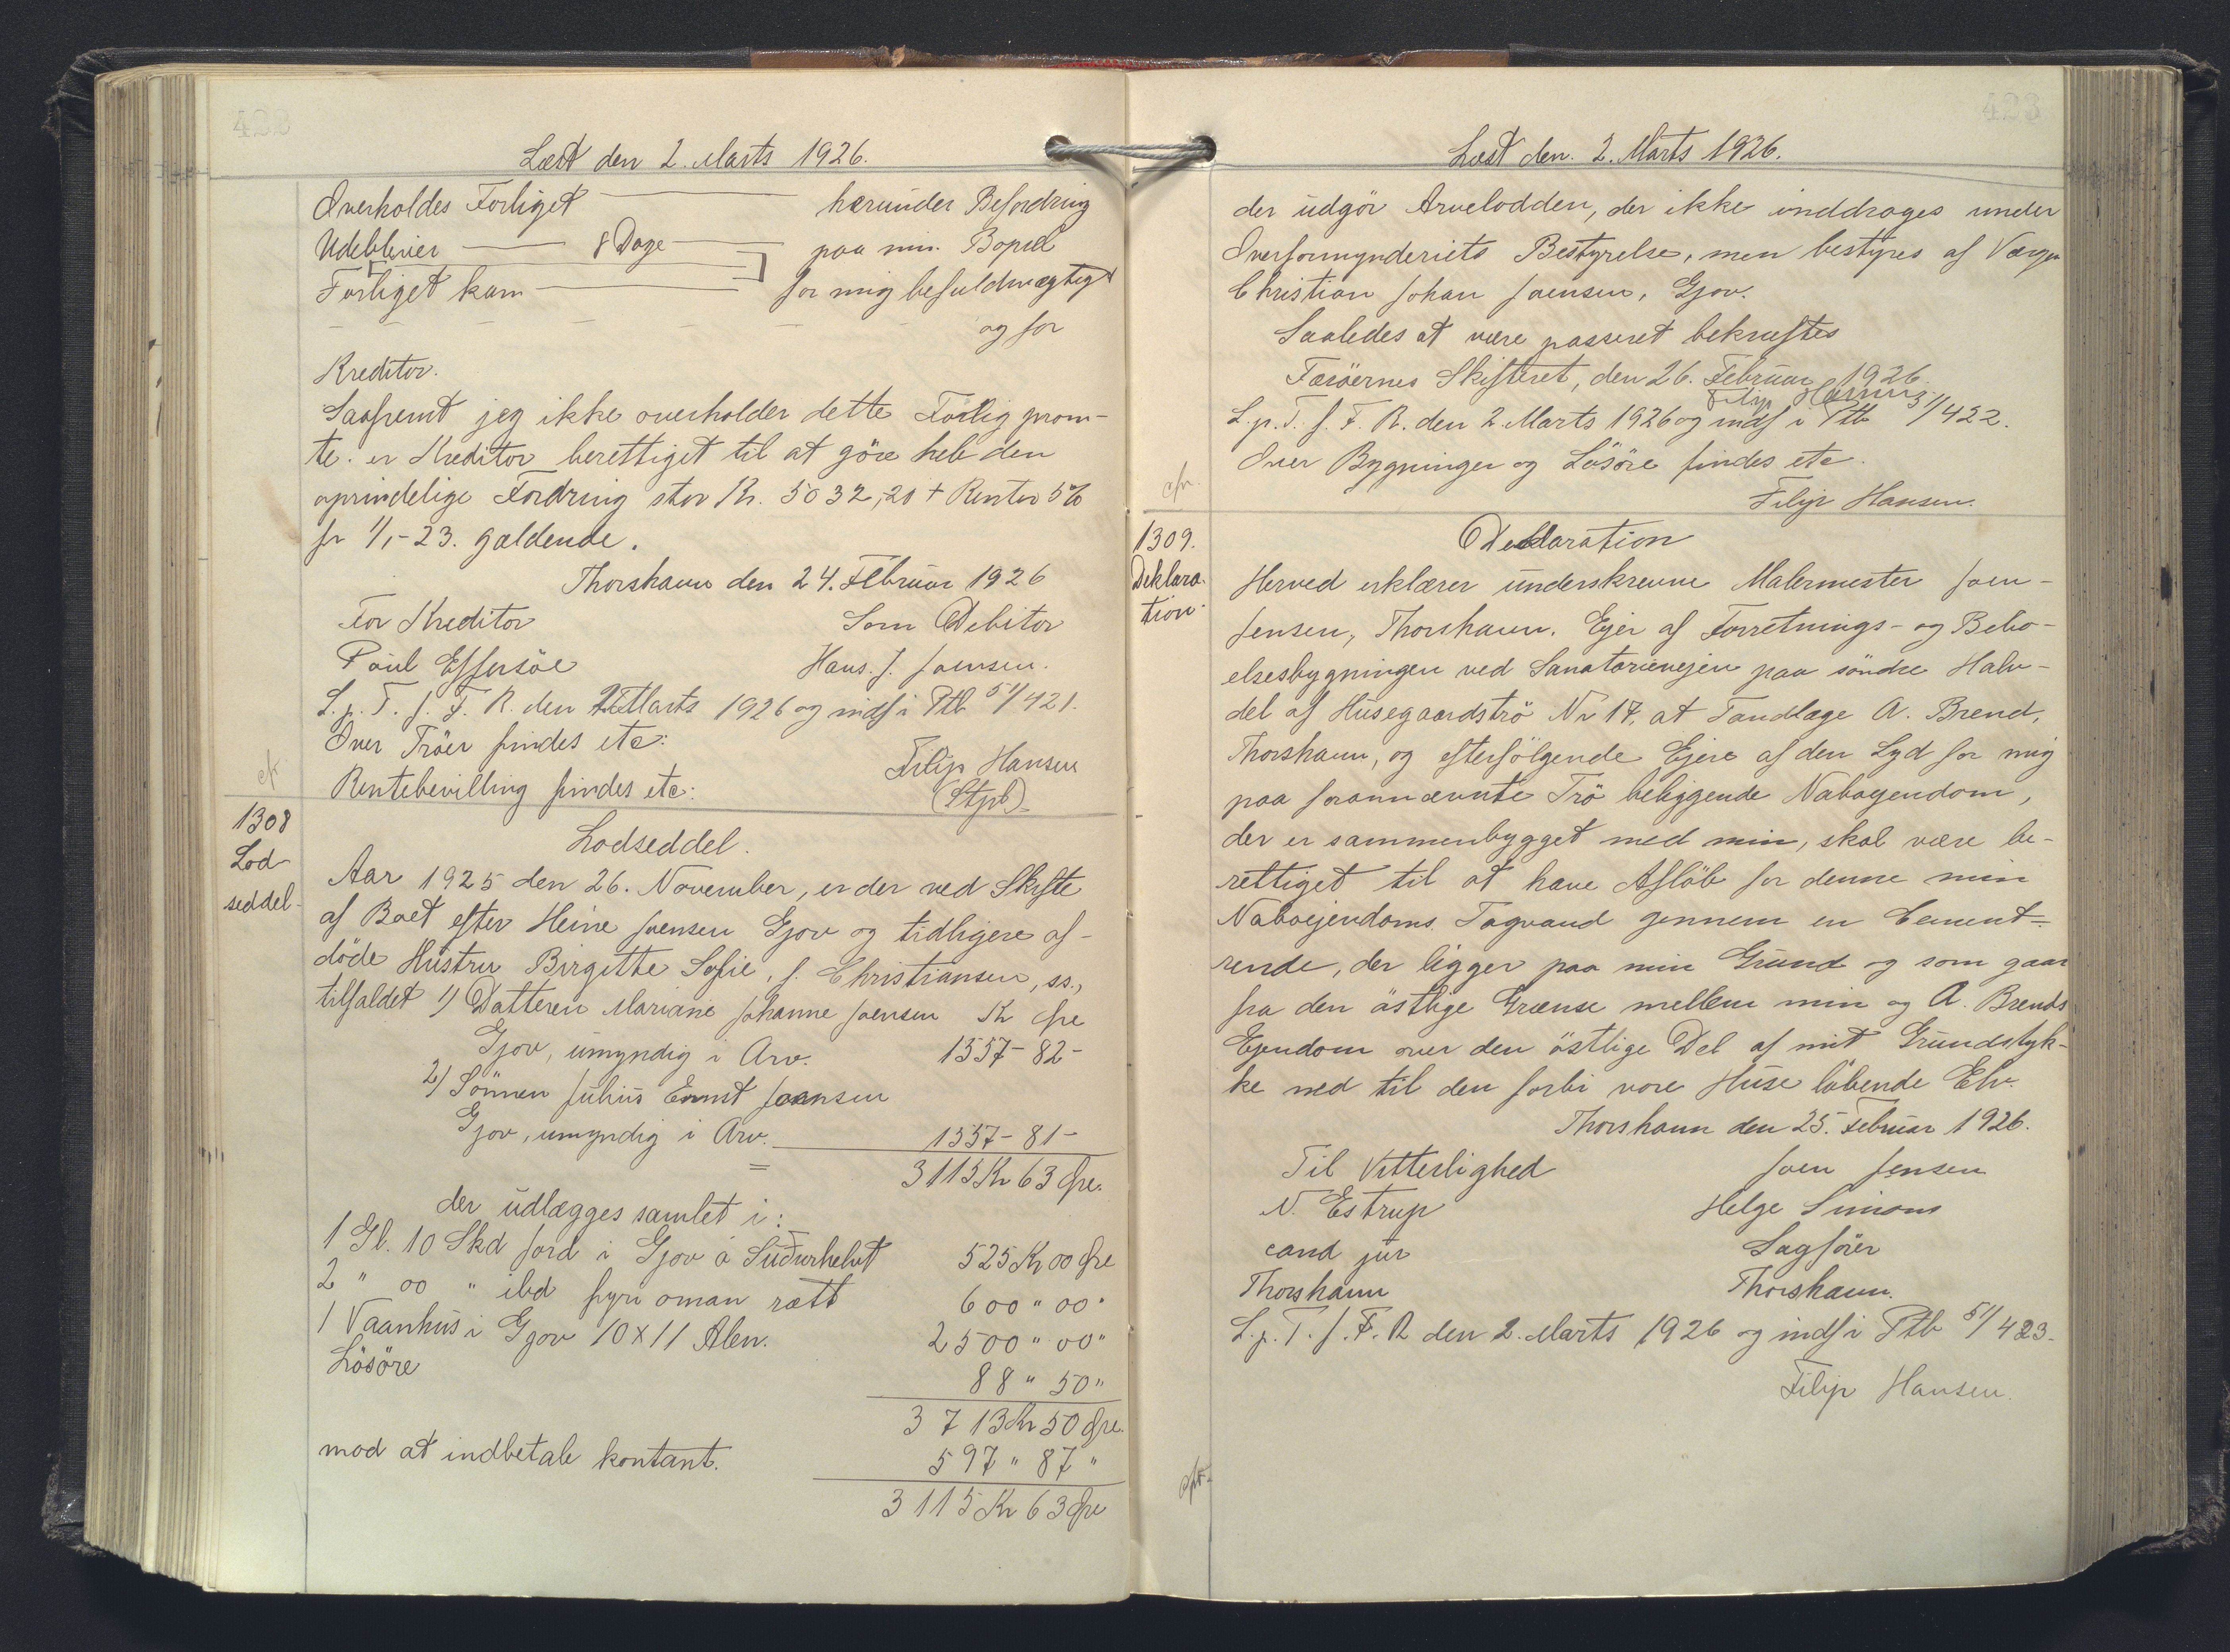 422
Læst den 2. Marts 1926.
Overholdes Forliget herunder Befordring
Udebliver 8 Dage paa min Bopæl
Forliget kan for mig befuldmægtiget
og for
Kreditor.
Saafremt jeg ikke overholder dette Forlig prom-
te. er Kreditor berettiget til at göre hele den
oprindelige Fordring stor Kr. 5032,20 + Renter 5%
fr 1/1-23. gældende.
Thorshavn den 24. Februar 1926
For Kreditor Som Debitor
Poul Effersöe Hans. J. Joensen.
L. p. T. f. F. R. den 2 Marts 1926 og indf i Ptb 51/421.
Over Tröer findes etc:
Filip Hansen
cfr
Rentebevilling findes etc:
(Stpb)
1308
Lod-
seddel-
Lodseddel.
Aar 1925 den 26. November, er der ved Skifte
af Boet efter Heine Joensen Gjov og tidligere af-
döde Hustru Birgitte Sofie, f. Christiansen, ss.,
tilfaldet 1) Datteren Mariane Johanne Joensen Kr Øre
Gjov, umyndig i Arv. 1557-82-
2) Sönnen Julius Ernst Joensen
Gjov, umyndig i Arv. 1557-81-
= 3115 Kr 63 Øre.
der udlægges samlet i:
1 Gl. 10 Skd Jord i Gjov á Suðurhelvt 525 Kr 00 Øre
2 " 00 " ibd fyri oman rætt 600 " 00 "
1 Vaanhus i Gjov 10 x 11 Alen. 2500 " 00 "
Lösöre 88 " 50 "
3713 Kr 50 Øre.
mod at indbetale kontant. 597 " 87 "
3115 Kr 63 Øre
423
Læst den. 2. Marts 1926.
der udgör Arvelodden, der ikke inddrages under
Overformynderiets Bestyrelse, men bestyres af Værgen
Christian Johan Joensen, Gjov.
Saaledes at være passeret bekræftes
Færöernes Skifteret, den 26. Februar 1926.
Filip Hansen
L. p. T. f. F. R. den 2. Marts 1926 og indf i Ptb 51/422.
Over Bygninger og Lösöre findes etc.
cfr.
Filip Hansen.
1309.
Deklara-
tion.
Deklaration
Herved erklærer underskrevne Malermester Joen-
Jensen, Thorshavn. Ejer af Forretnings- og Bebo-
elsesbygningen ved Sanatorievejen paa söndre Halv-
del af Husegaardströ Nr 17, at Tandlæge A. Brend,
Thorshavn, og efterfölgende Ejere af den Syd for mig
paa forannævnte Trö beliggende Naboejendom,
der er sammenbygget med min, skal være be-
rettiget til at have Aflöb for denne min
Naboejendoms Tagvand gennem en Cement-
rende, der ligger paa min Grund og som gaar
fra den östlige Grænse mellem min og A. Brends
Ejendom over den östlige Del af mit Grundstyk-
ke ned til den forbi vore Huse löbende Elv.
Thorshavn den 25. Februar 1926.
Til Vitterlighed Joen Jensen
N. Estrup Helge Simons
cand jur Sagförer
Thorshavn Thorshavn.
L. p. T. f. F. R den 2. Marts 1926 og indf i Ptb 51/423.
Filip Hansen.
cfr.